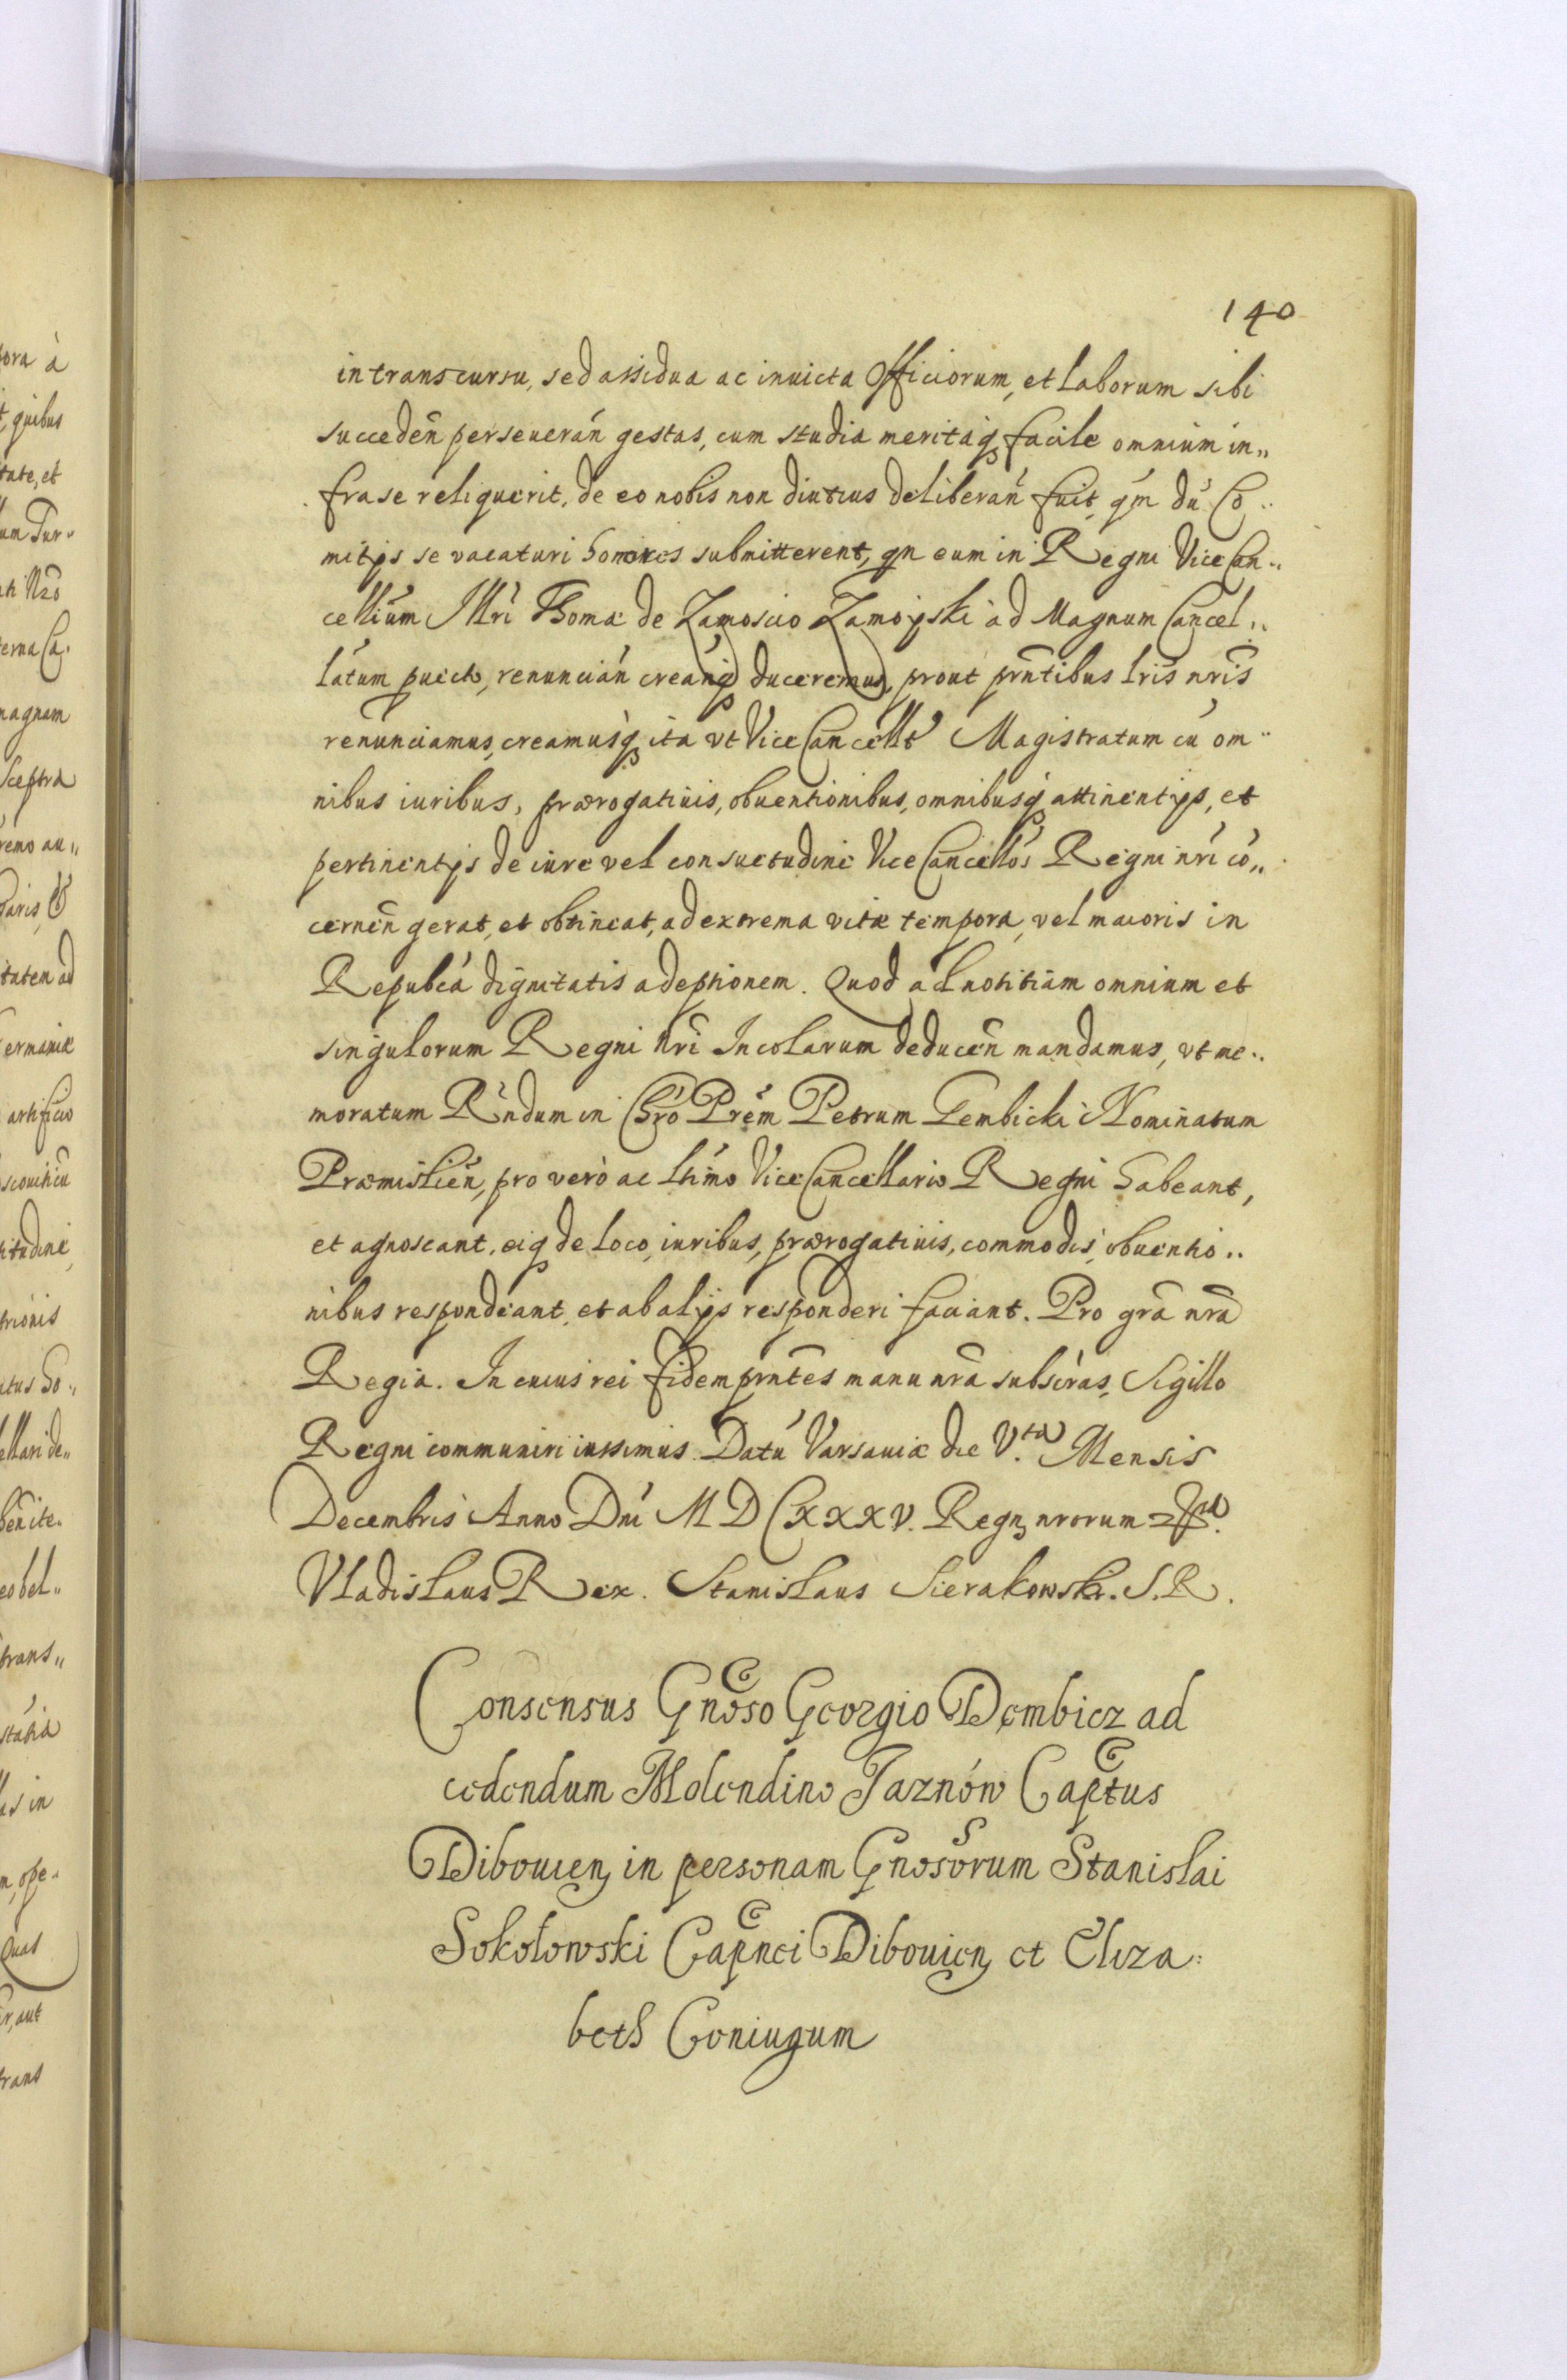 140
in transcursu, sed assidua ac inuicta Officiorum, et laborum sibi
succedeñ perseuerań gestas, cum studia meritaq; facile omnium in„
fra se reliquerit, de eo nobis non diutius deliberań fuit, qm̃ dú Co„
mitijs se vacaturi honores submitterent, qn eum in Regni Vice Can„
cellium Illrı̀ Thoma de Zamoscio Zamoyski ad Magnum Cancel„
látum puecto, renuncián creánq; duceremus, prout prñtibus lris̃ nris̃
renunciamus, creamusq; ita vt Vice Cancellt́ Magistratum cú om„
nibus iuribus, prærogatiuis, obuentionibus, omnibusq; attinentijs, et
pertinentijs de iure vel consuetudine Vice Cancellós Regni nrı́ có„
cerneñ gerat, et obtineat, ad extrema vitæ tempora, vel maioris in
Republcá dignitatis adeptionem. Quod ad notitiam omnium et
singulorum Regni nrı̃ Incolarum deduceñ mandamus, vt me„
moratum Rńdum in Chrõ Prém Petrum Gembicki Nominatum
Præmislień, pro vero ac ltimo Vice Cancellario Regni habeant,
et agnoscant, eiq; de loco, iuribus, prærogatiuis, commodis, obuentio„
nibus respondeant, et ab alijs responderi faciant. Pro grã nrã
Regia. In cuius rei fidem prñtes manu nrã subscŕas, Sigillo
Regni communiri iussimus. Datú Varsauiæ die V.ta Mensis
Decembris Anno Dnı́ MDCXXXV. Regn; nrorum
Vladislaus Rex. Stanislaus Sierakowski. S. R.
Consensus Gnõso Georgio Dembicz ad
cedendum Molendino Jaznów Captus
Dibouien; in personam Gnosorum Stanislai
Sokołowski Capnei Dibouien; et Eliza:
beth Coniugum